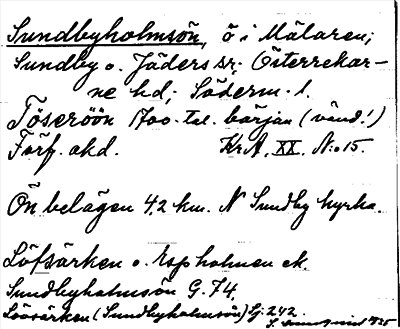 Sundbyholmsön, ö i Mälaren;
Sundby o. Jäders sr; Österrekar-
ne hd; Söderm. l.
Töseröön 1700-tal. början (vänd!)
Förf. okd. KrA. XX. No 15.
Ön belägen 4,2 km. N Sundby kyrka.
Löfsärken o. Espholmen ek.
Sundbyholmsön G. 74.
Lövsärken (Sundbyholmsön) Gj: 242
1935